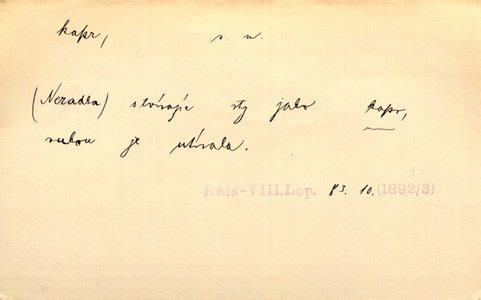 kapr, s. m.
(Nezadla) otvírajíc rty jako kapr,
rukou je utírala.
Rais-VIII.Lop. 83. 10. (1892/3)